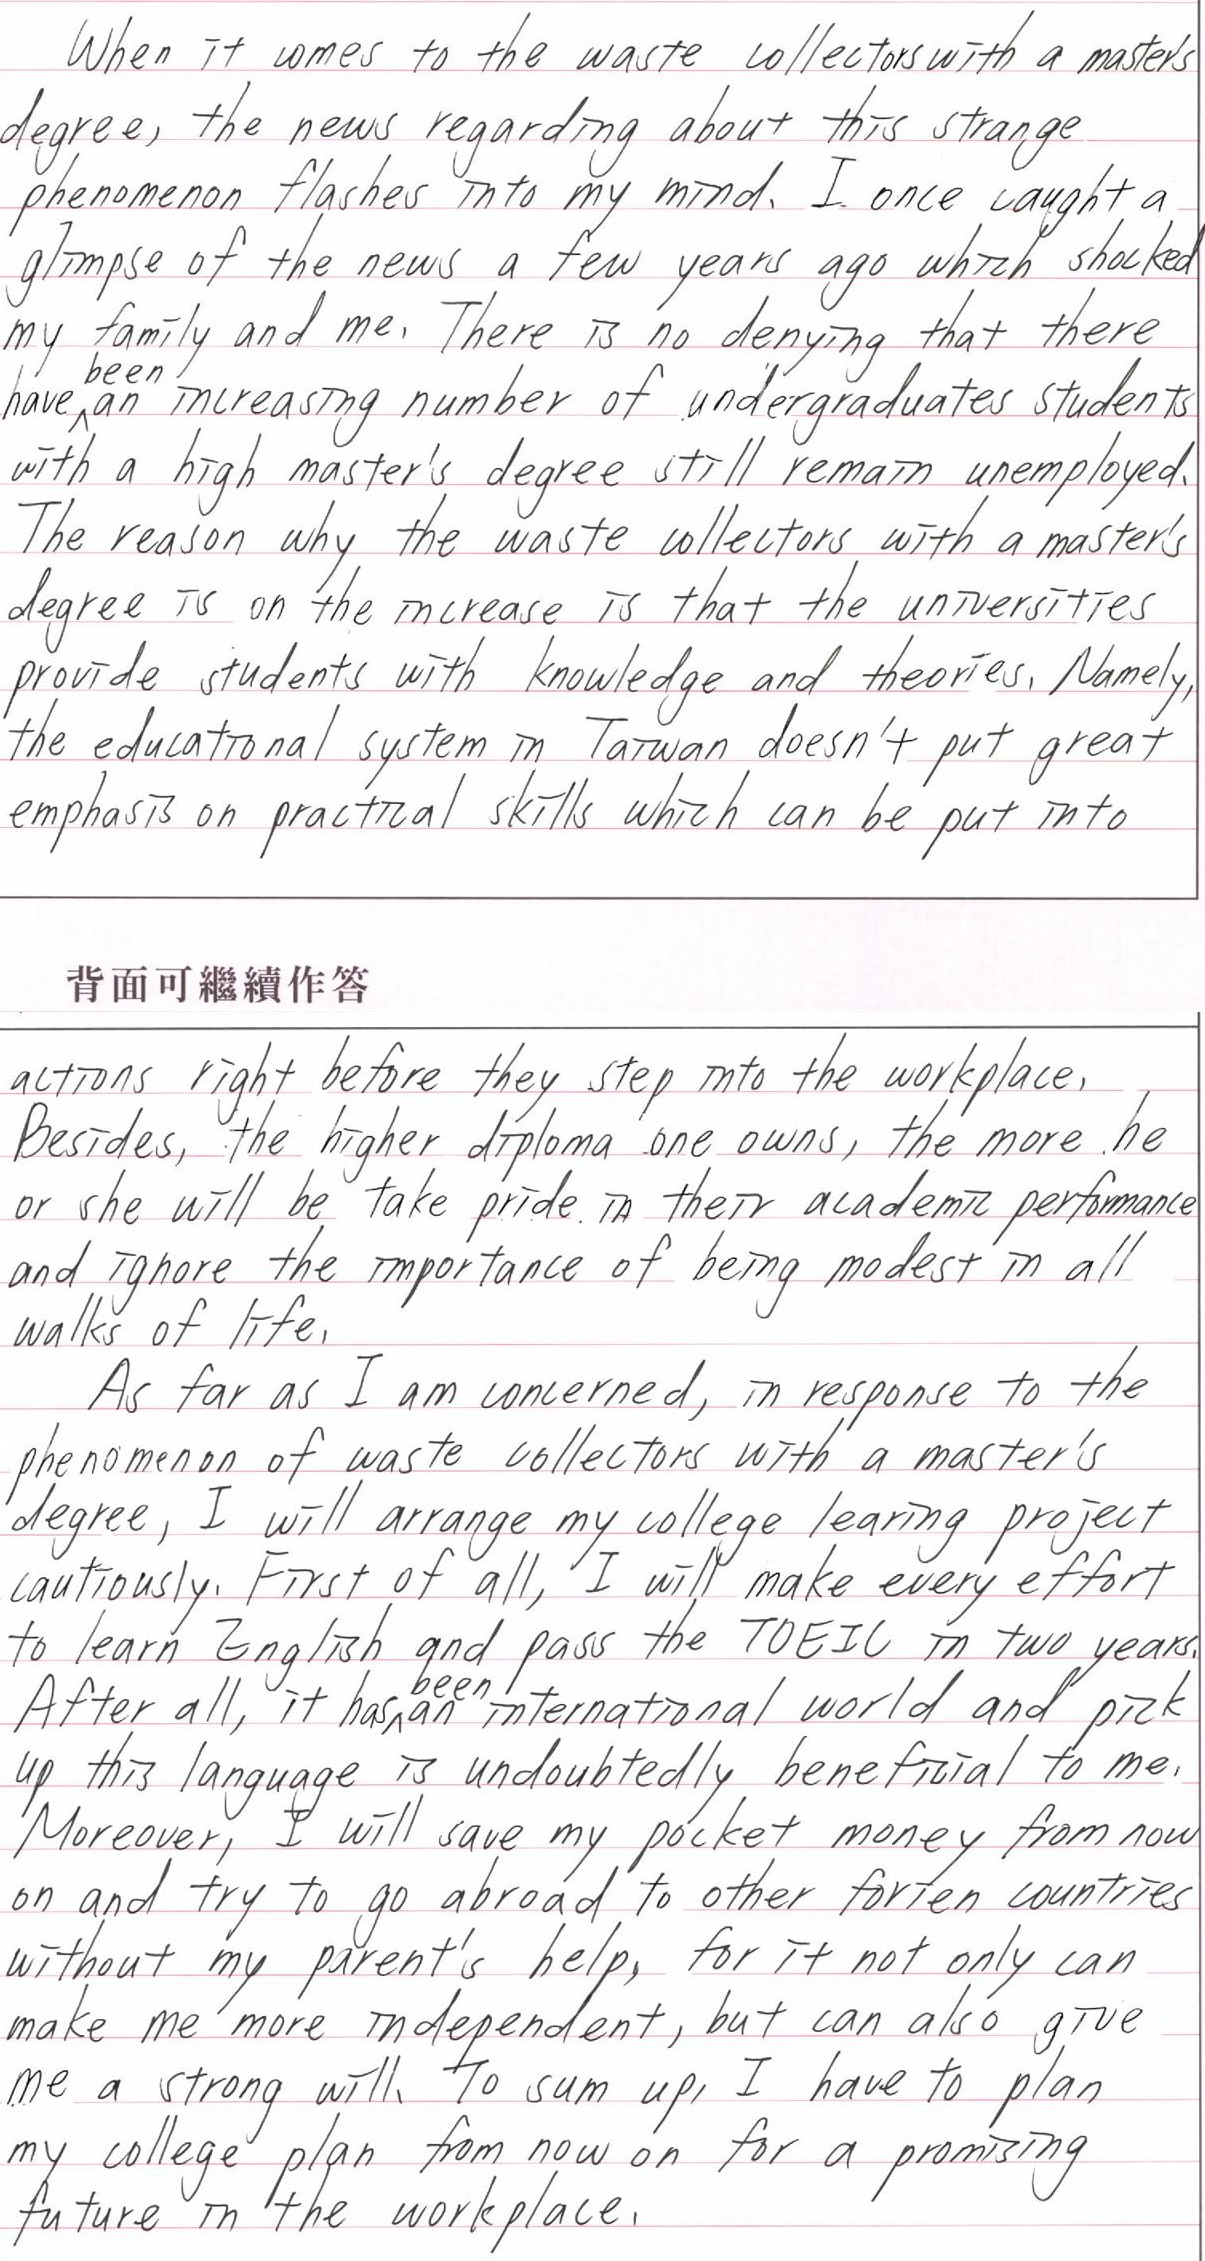 When it comes to the waste collectors with a master's
degree, the news regarding about this strange
phenomenon flashes into my mind. I once caught a
glimpse of the news a few years ago which shocked
my family and me. There is no denying that there
have been an increasing number of undergraduates students
with a high master's degree still remain unemployed.
The reason why the waste collectors with a master's
degree is on the increase is that the universities
provide students with knowledge and theories. Namely,
the educational system in Taiwan doesn't put great
emphasis on practical skills which can be put into
背面可繼續作答
actions right before they step into the workplace.
Besides, the higher diploma one owns, the more he
or she will be take pride in their academic performance
and ignore the importance of being modest in all
walks of life.
As far as I am concerned, in response to the
phenomenon of waste collectors with a master's
degree, I will arrange my college learing project
cautiously. First of all, I will make every effort
to learn English and pass the TOEIC in two years.
After all, it has been an international world and pick
up this language is undoubtedly beneficial to me.
Moreover, I will save my pocket money from now
on and try to go abroad to other forien countries
without my parent's help, for it not only can
make me more independent, but can also give
me a strong will. To sum up, I have to plan
my college plan from now on for a promising
future in the workplace.